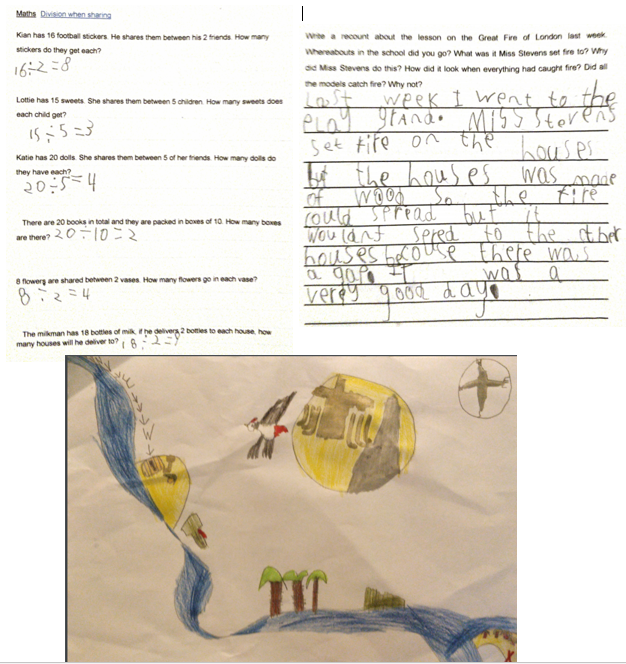 Maths Division when sharing
Kian has 16 football stickers. He shares them between his 2 friends. How many
stickers do they get each?
16÷2=8
Lottie has 15 sweets. She shares them between 5 children. How many sweets does
each child get?
15÷5=3
Katie has 20 dolls. She shares them between 5 of her friends. How many dolls do
they have each?
20÷5=4
There are 20 books in total and they are packed in boxes of 10. How many boxes
are there? 20÷10=2
8 flowers are shared between 2 vases. How many flowers go in each vase?
8÷2=4
The milkman has 18 bottles of milk, if he delivers 2 bottles to each house, how
many houses will he deliver to? 18÷2=9
Write a recount about the lesson on the Great Fire of London last week.
Whereabouts in the school did you go? What was it Miss Stevens set fire to? Why
did Miss Stevens do this? How did it look when everything had caught fire? Did all
the models catch fire? Why not?
Last week I went to the
play grand. Miss Stevens
set fire on the houses
the houses was made
of wood so the fire
could spread but it
wouldant spred to the other
houses becouse there was
a gap. It was a
verey good day.